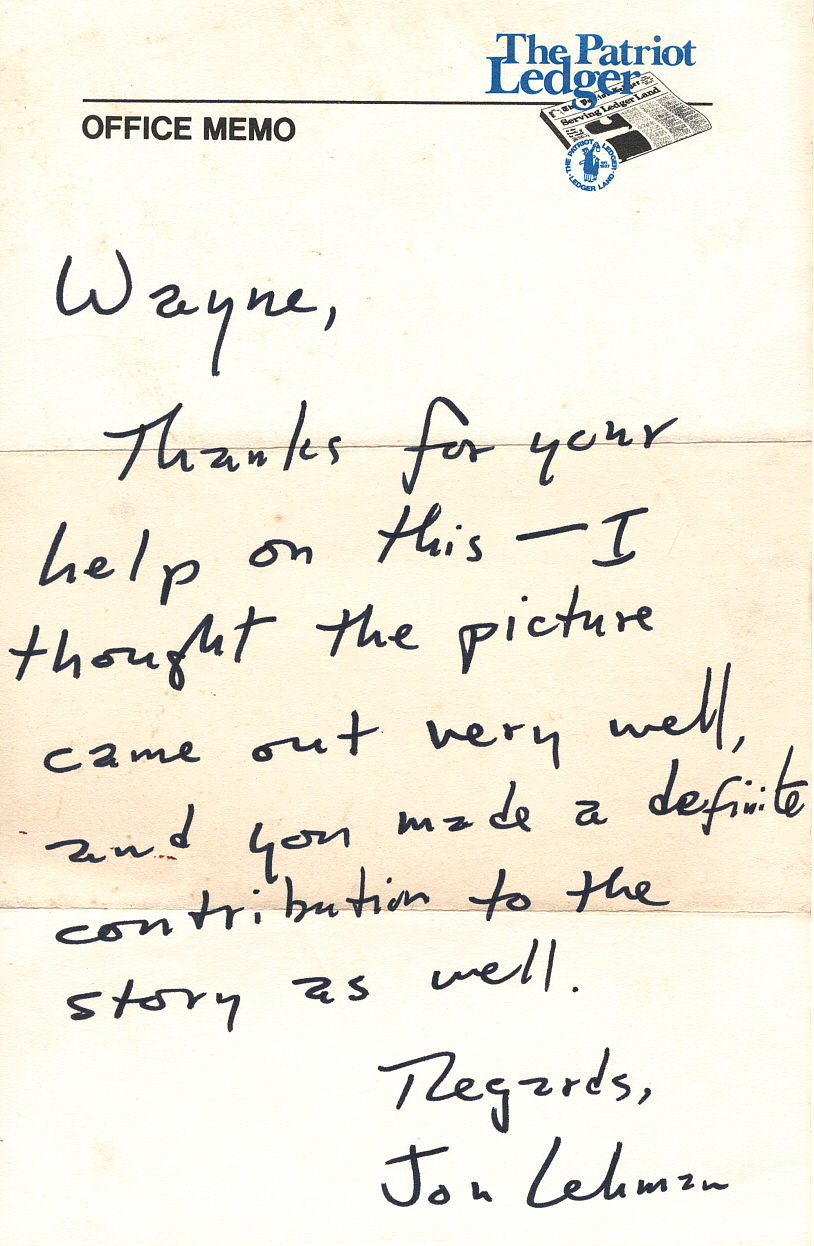 The Patriot
Ledger
Serving Ledger Land
THE PATRIOT LEDGER
LEDGER LAND
OFFICE MEMO
Wayne,
Thanks for your
help on this — I
thought the picture
came out very well,
and you made a definite
contribution to the
story as well.
Regards,
Jon Lehman